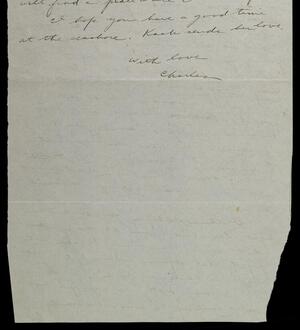 will find a
I hope you have a good time
at the seashore. sends her love.
With love
Charles